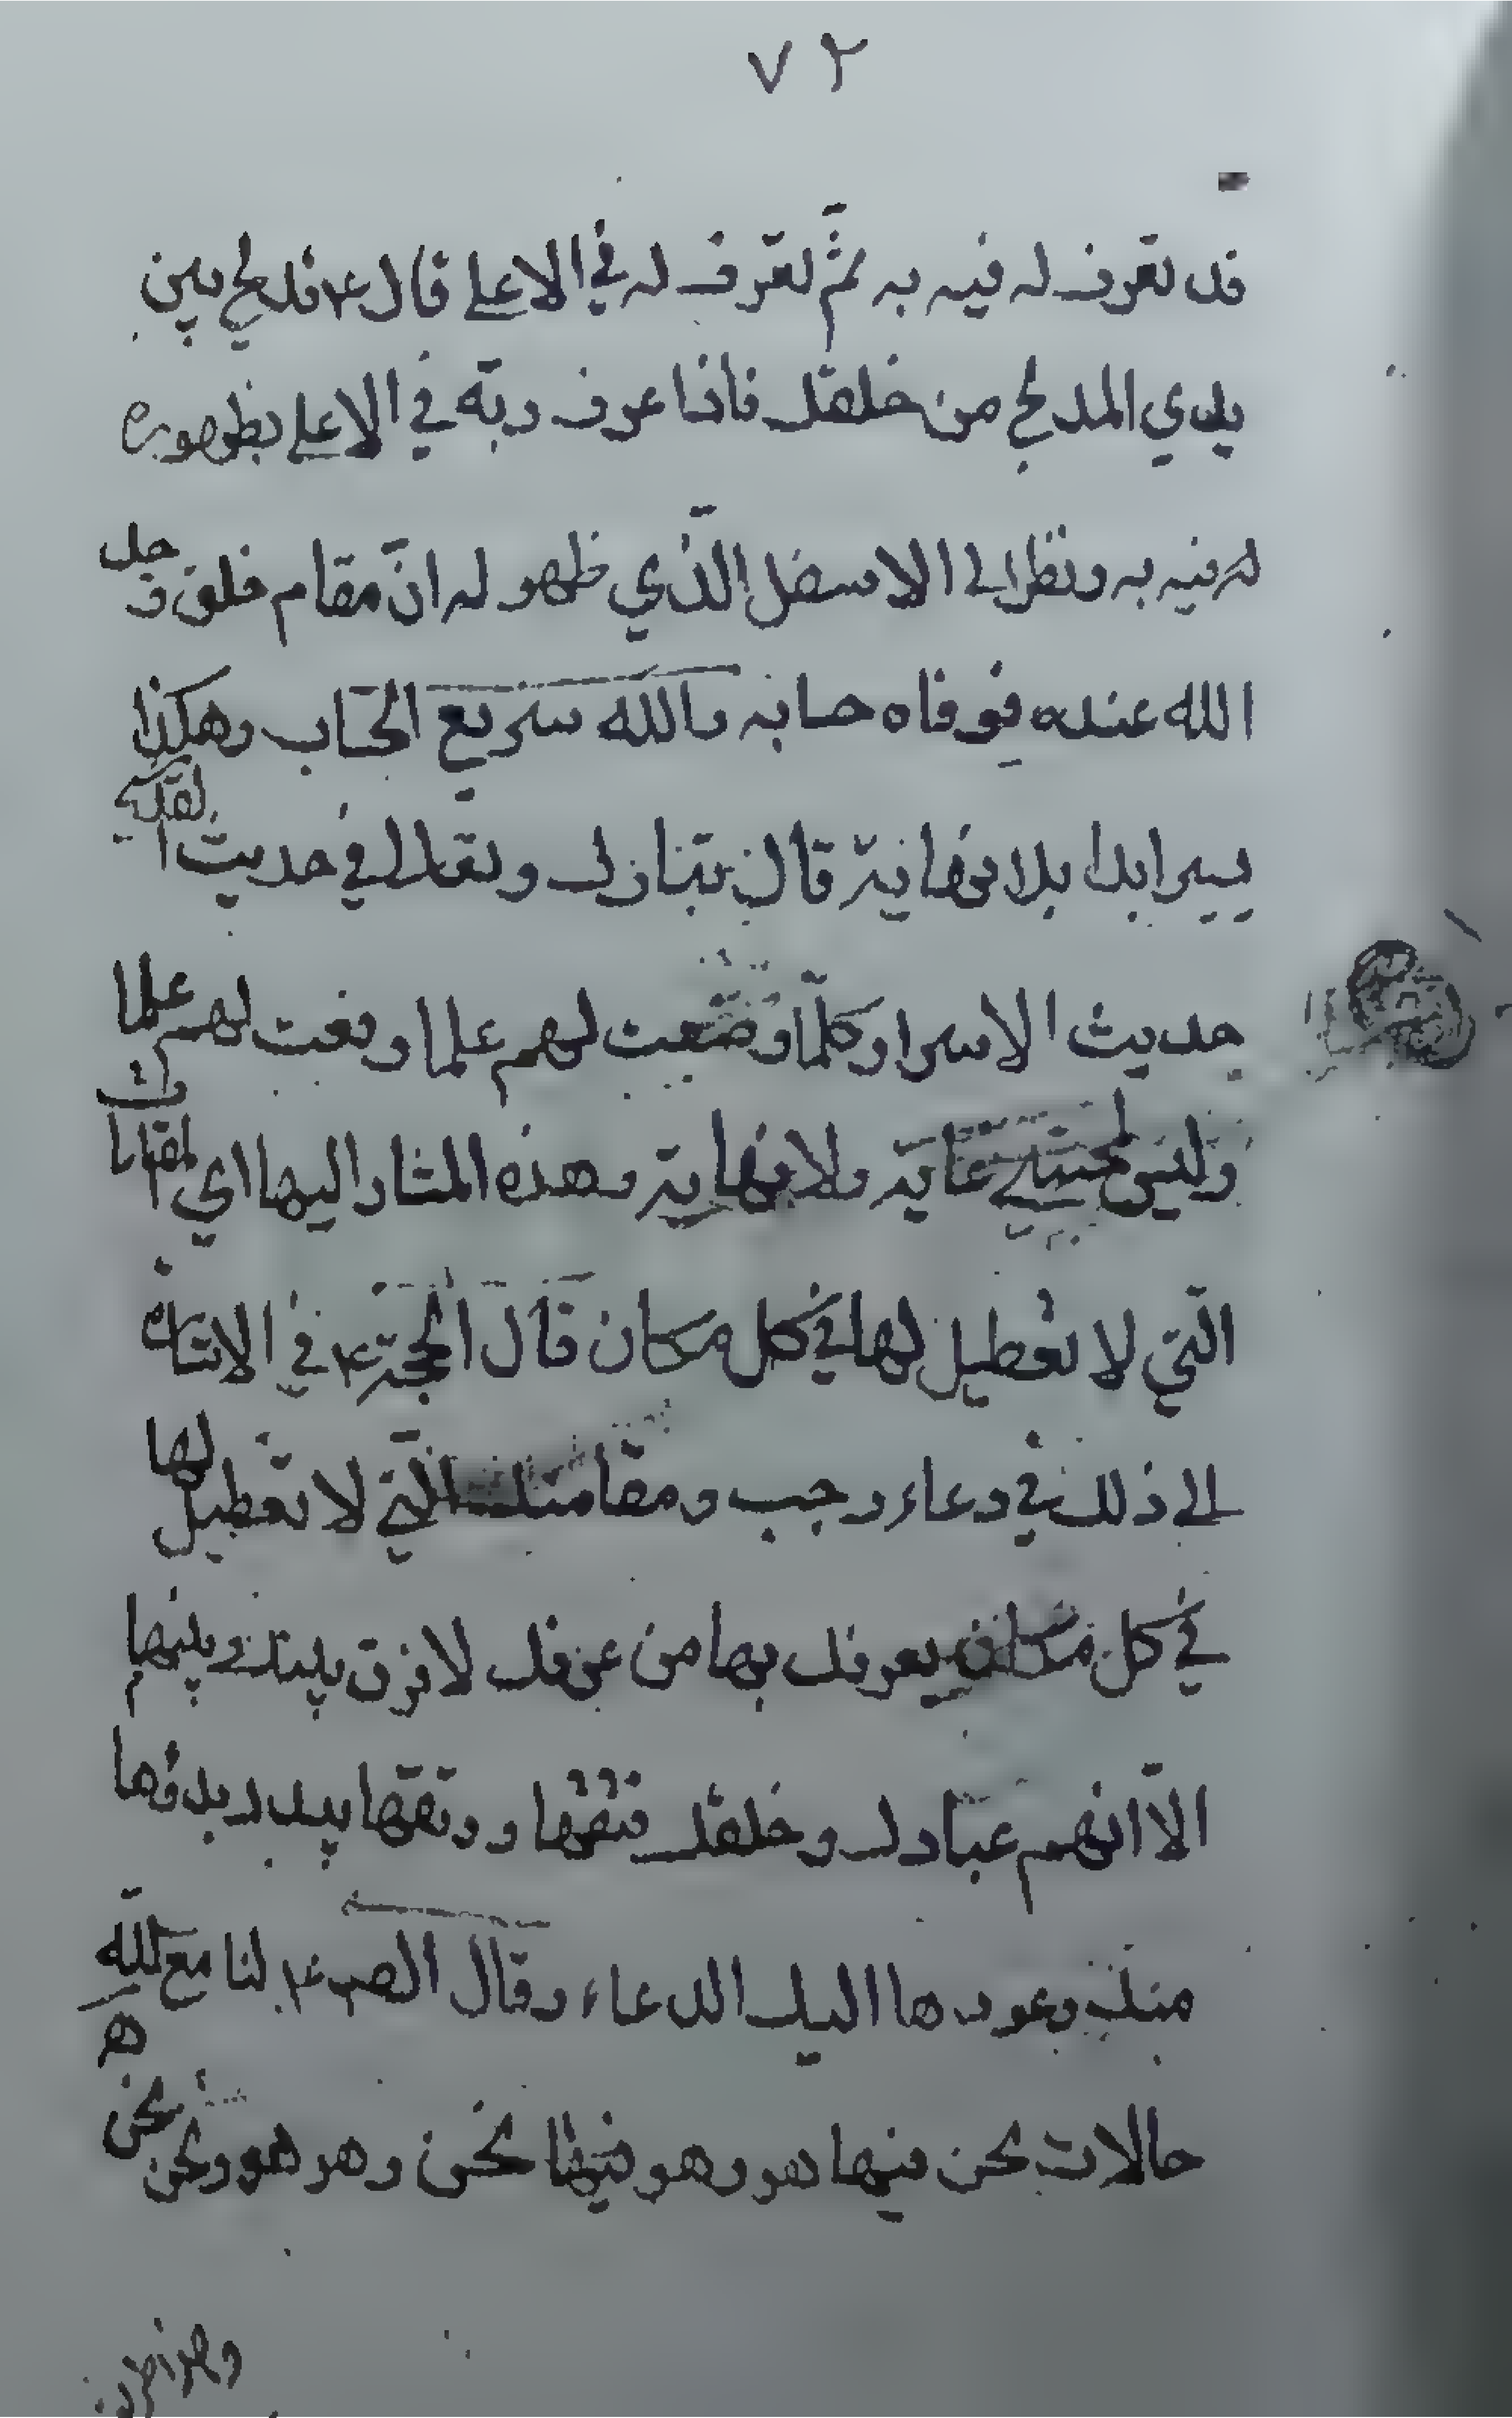 ٧٢
قد تعرف له فيه به ثمّ تعرف له في الاعلى قال ع تدلج بين
يدي المدلج من خلقك فاذا عرف ربّه في الاعلى بظهوره
له فيه به ونظر الى الاسفل الّذي ظهو له انّ مقام خلق وجد
الله عنده فوفاه حسابه والله سريع الحساب وهكذا
يسير ابدا بلا نهاية قال تبارك وتعالى في حديث القدسي
حديث الاسرار وكلّما وضعت لهم علما رفعت لهم علما
وليس لمحبتي غاية ولا نهاية وهذه المشار اليها اي المقامات
الّتي لا تعطيل لها في كل مكان قال الحجّة ع في الاشارة
الى ذلك في دعاء رجب ومقاماتك الّتي لا تعطيل لها
في كل مكان يعرفك بها من عرفك لا فرق بينك وبينها
الّا انّهم عبادك وخلقك فتقها ورتقها بيدك بدؤها
منك وعودها اليك الدعاء وقال الص ع لنا مع الله
حالات نحن فيها هو وهو فيها نحن وهو هو ونحن نحن